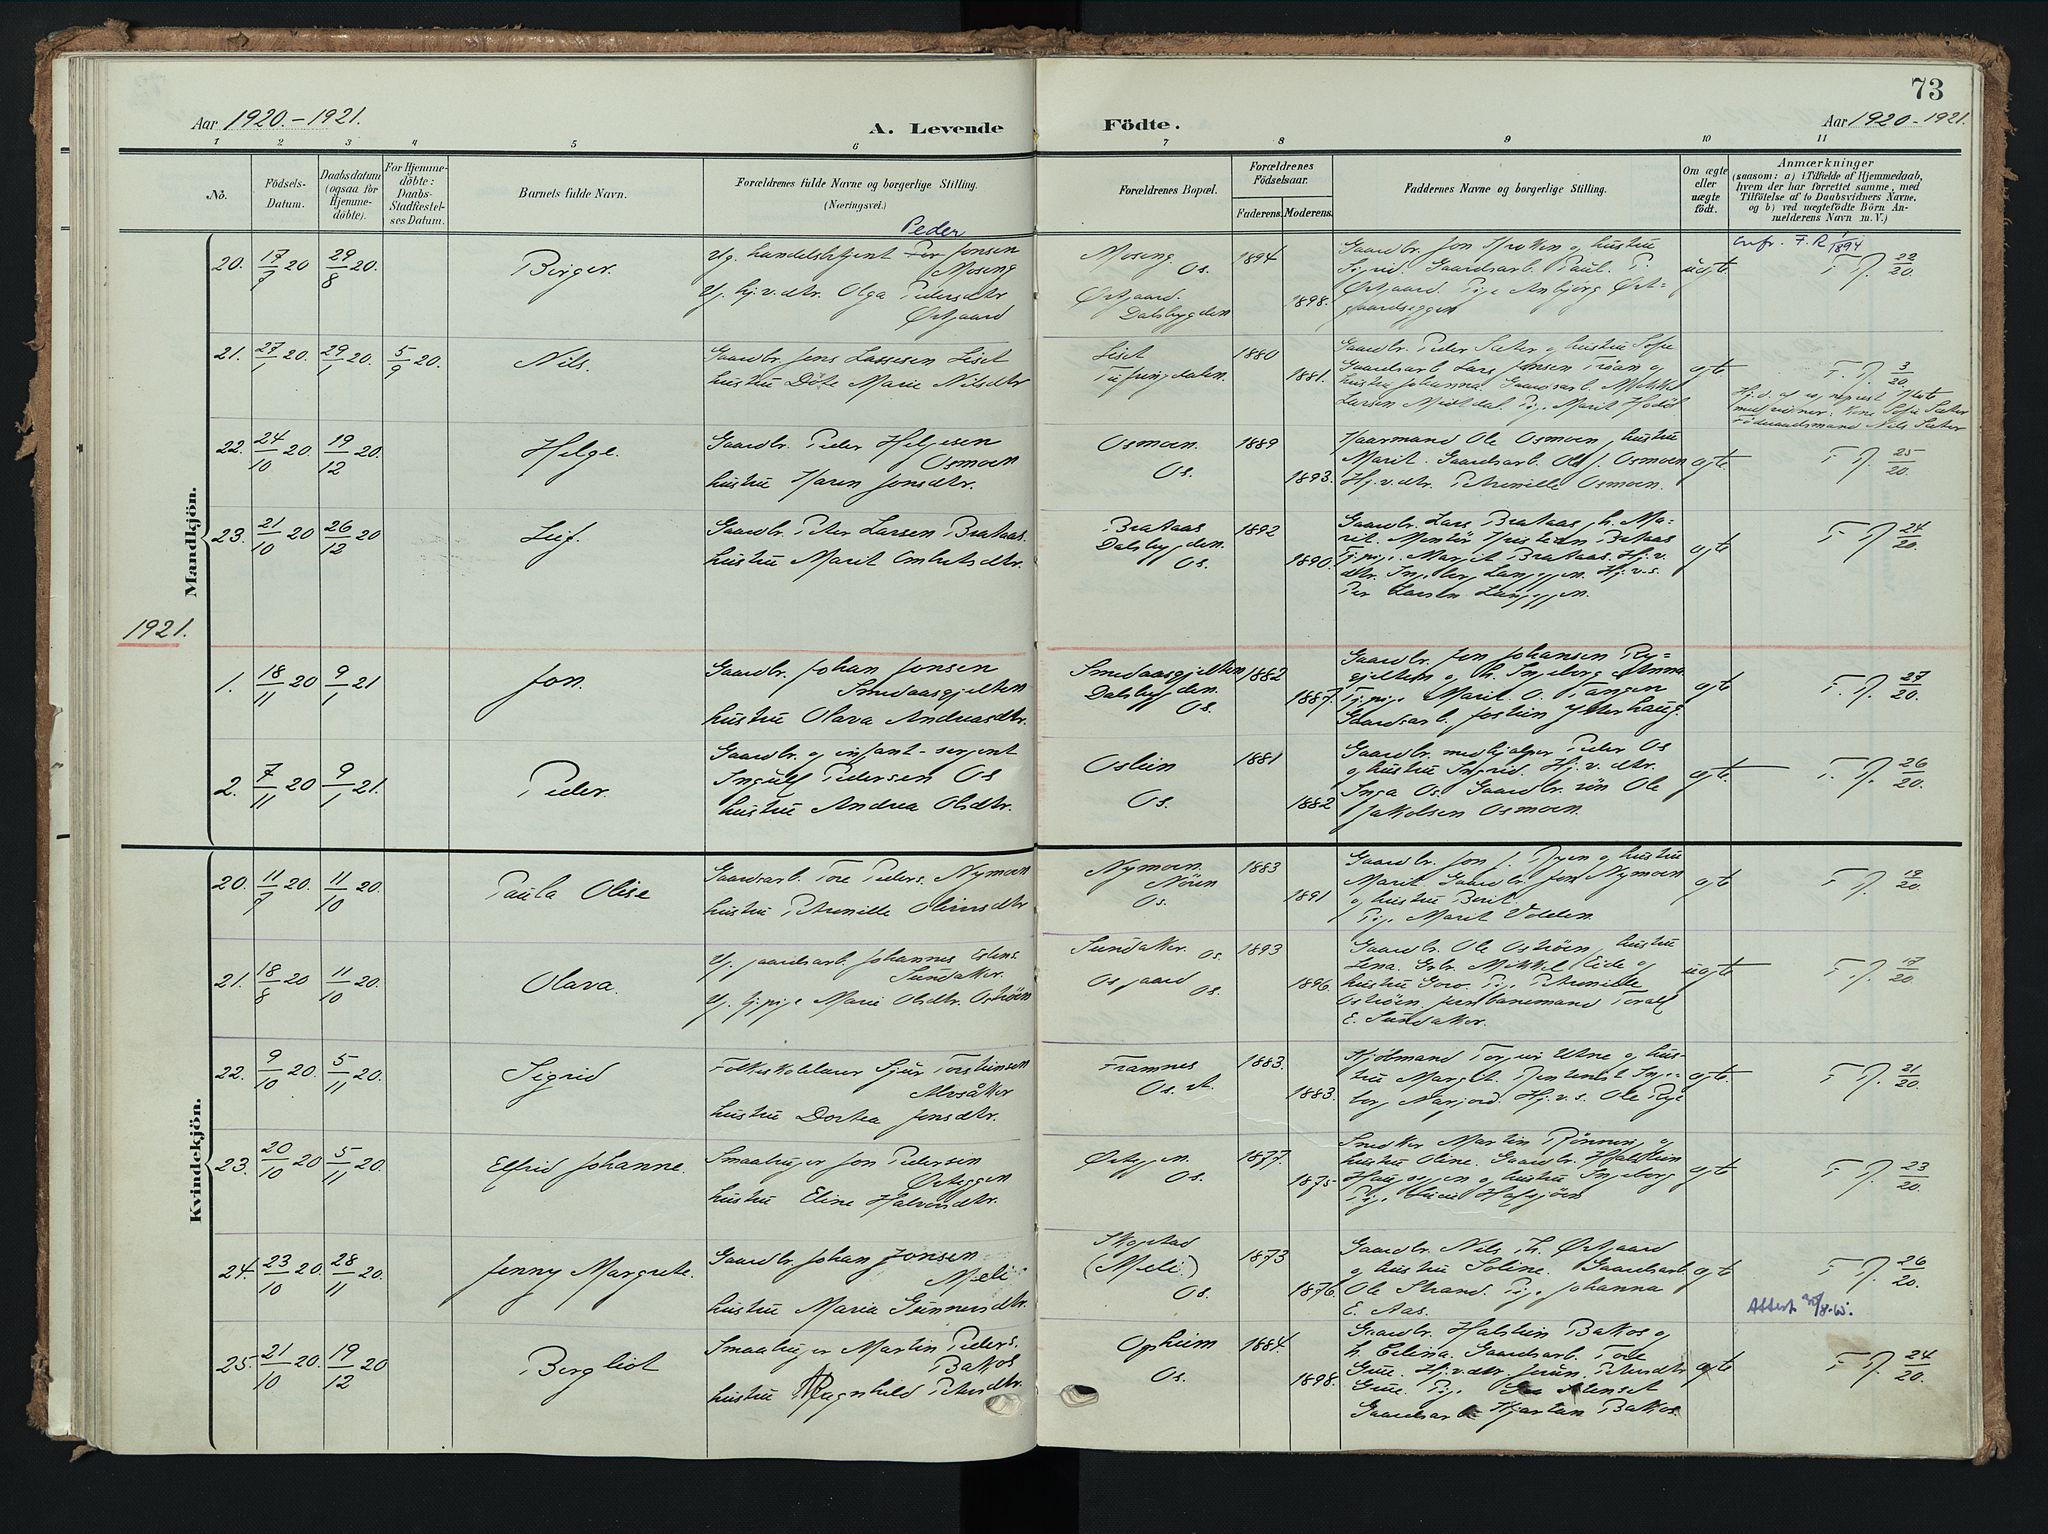 73
Aar 1920.-1921.
A. Levende Födte.
Aar 1920-1921.
1 2 3 4 5 6 7 8 9 10 11
No.
Födsels-
Datum.
Daabsdatum
(ogsaa for
Hjemme-
döbte).
For Hjemme-
döbte:
Daabs-
Stadfæstel-
ses Datum.
Barnets fulde Navn.
Forældrenes fulde Navne og borgerlige Stilling.
(Næringsvei.)
Forældrenes Bopæl.
Forældrenes
Födselsaar.
Faderens.
Moderens.
Faddernes Navne og borgerlige Stilling.
Om ægte
eller
uægte
födt.
Anmærkninger
(saasom: a) i Tilfælde af Hjemmedaab,
hvem der har forrettet samme, med
Tilföielse af to Daabsvidners Navne,
og b) ved uægtefödte Börn An-
melderens Navn m. V.)
Mandkjön.
20. 17/7 20 29/8 20. Birger.
Peder
Ug. handelsbetjent Per Jonsen
Moseng
Ug. hj.v.dtr. Olga Pedersdtr
Ørtgaard
Moseng
Os.
Ørtgaard.
Dalsbygden
1894
1898.
Gaardbr. Jon hustru
Sigrid. Gaardsarb. Paul P.
Ørtgaard. Pige Anbjørg Ørt-
gaardseggen
uægte
F. R. 1/1894
F. J. 22/20.
21. 27/1 20. 29/1 20. 5/9 20. Nils.
Gaardbr. Jens Lassesen Liset
hustru Døte Marie Nilsdtr
Liset
Tufsingdalen.
1880
1881.
Gaardbr. Peder Sæter og hustru Sofie
Gaardsarb. Lars Jensen Trøan og
hustru Johanna. Gaardsarb. Mikkel
Larsen Midtdal. Pige Marit
ægte
F. J. 3/20.
Sofie Sæter
Nils Sæter
22. 24/10 20. 19/12 20. Helge.
Gaardbr. Peder Helgesen
Osmoen
hustru Karen Jonsdtr.
Osmoen.
Os.
1889
1893.
Ole Osmoen, hustru
Marit. Gaardsarb. Ole J. Osmoen
Hj.v.dtr. Petronille Osmoen.
ægte.
F. J. 25/20.
23. 21/10 20 26/12 20 Leif.
Gaardbr. Peter Larsen Brataas.
hustru Marit Embretsdtr.
Brataas
Dalsbygden.
Os.
1892
1890.
Gaardbr. Lars Brataas, h. Ma-
rit. Montør Kristian Brataas
Tj.pige Margit Brataas. Hj.v.
dtr. Ingeborg Langeggen. Hj.v.s.
Per Larsen Langeggen.
ægte
F. J. 24/20.
1921.
1. 18/11 20 9/1 21 Jon.
Gaardbr. Johan Jonsen
Smedaasgjelten
hustru Olava Andreasdtr.
Smedaasgjelten
Dalsbygden.
Os.
1882
1887.
Gaardbr. Jon Johansen Ry-
gjelten og h. Ingeborg Anna
Tj.pige Marit O. Tangen
Gaardsarb. Jostein Ytterhaug.
ægte
F. J. 27/20.
2. 7/11 20 9/1 21. Peder.
Gaardbr. og infant-sergent
Inguel Pedersen Os
hustru Andrea Olsdtr.
Oslien
Os.
1881
1882
Gaardbr. medhjelper Peder Os
og hustru Ingrid. Hj.v.dtr.
Inga Os. Gaardbr. søn Ole
Jakobsen Osmoen.
ægte.
F. J. 26/20.
Kvindekjön.
20. 11/7 20. 11/10 20. Paula Olise
Gaardsarb. Tore Peders. Nymoen
hustru Petronille Olinusdtr
Nymoen.
Nøren
Os.
1883
1891
Gaardbr. Jon J. Ryen og hustru
Marit. Gaardbr. Jon Nymoen
og hustru Berit.
Pige Marit Volden
ægte
F. J. 19/20.
21. 18/8 20 11/10 20. Olava.
Ug. gaardsarb. Johannes Estens.
Sundaker.
Ug. tj.pige Marie Olsdtr. Ostrøen
Sundaker. Os.
Osgaard
Os.
1893
1896.
Gaardbr. Ole Ostrøen, hustru
Lena. Gbr. Mikkel Eide og
hustru Goro. Pige Petronille
Ostrøen, jernbanemand Toralf
E. Sundaker.
uægte
F. J. 17/20.
22. 9/10 20. 5/11 20. Sigrid
Folkeskolelærer Sjur Torsteinsen
Alvsåker
hustru Dortea Jonsdtr.
Framnes
Os. st.
1883.
1883.
Kjøbmand Torgeir Utne og hus-
tru Margit. Inge-
borg Narjord. Hj.v.s. Ole Rye
ægte.
F. J. 21/20.
23. 20/10 20 5/11 20. Elfrid Johanne.
Smaabruger Jon Pedersen
Ørteggen
hustru Eline Halvorsdtr.
Ørteggen.
Os.
1877.
1875
Snedker Martin og
hustru Oline. Gaardbr. Halstein
Haugseggen og hustru Ingeborg
Pige Hafsjøen
ægte
F. J. 23/20.
24. 23/10 20. 28/11 20. Jenny Margrete.
Gaardbr. Johan Jonsen
Meli
hustru Maria Gunnersdtr.
Skogstad
(Meli.)
Os.
1873
1876.
Gaardbr. Nils Th. Ørtgaard
og hustru Soline. Gaardsarb.
Ole Strand. Pige Johanna
E. Aas.
ægte
F. J. 26/20.
Attest 30/8-65.
25. 21/10 20. 19/12 20 Bergliot
Smaabruger Martin Peders.
Bakos
hustru Magnhild Petersdtr.
Opheim
Os.
1884.
1898.
Gaardbr. Halstein Bakos og
h. Elina. Gaardsarb. Tore
Grue. Hj.v.dtr. Petersdtr
Grue. Pige
Gaardsarb. Kjartan Bakos.
ægte
F. J. 24/20.